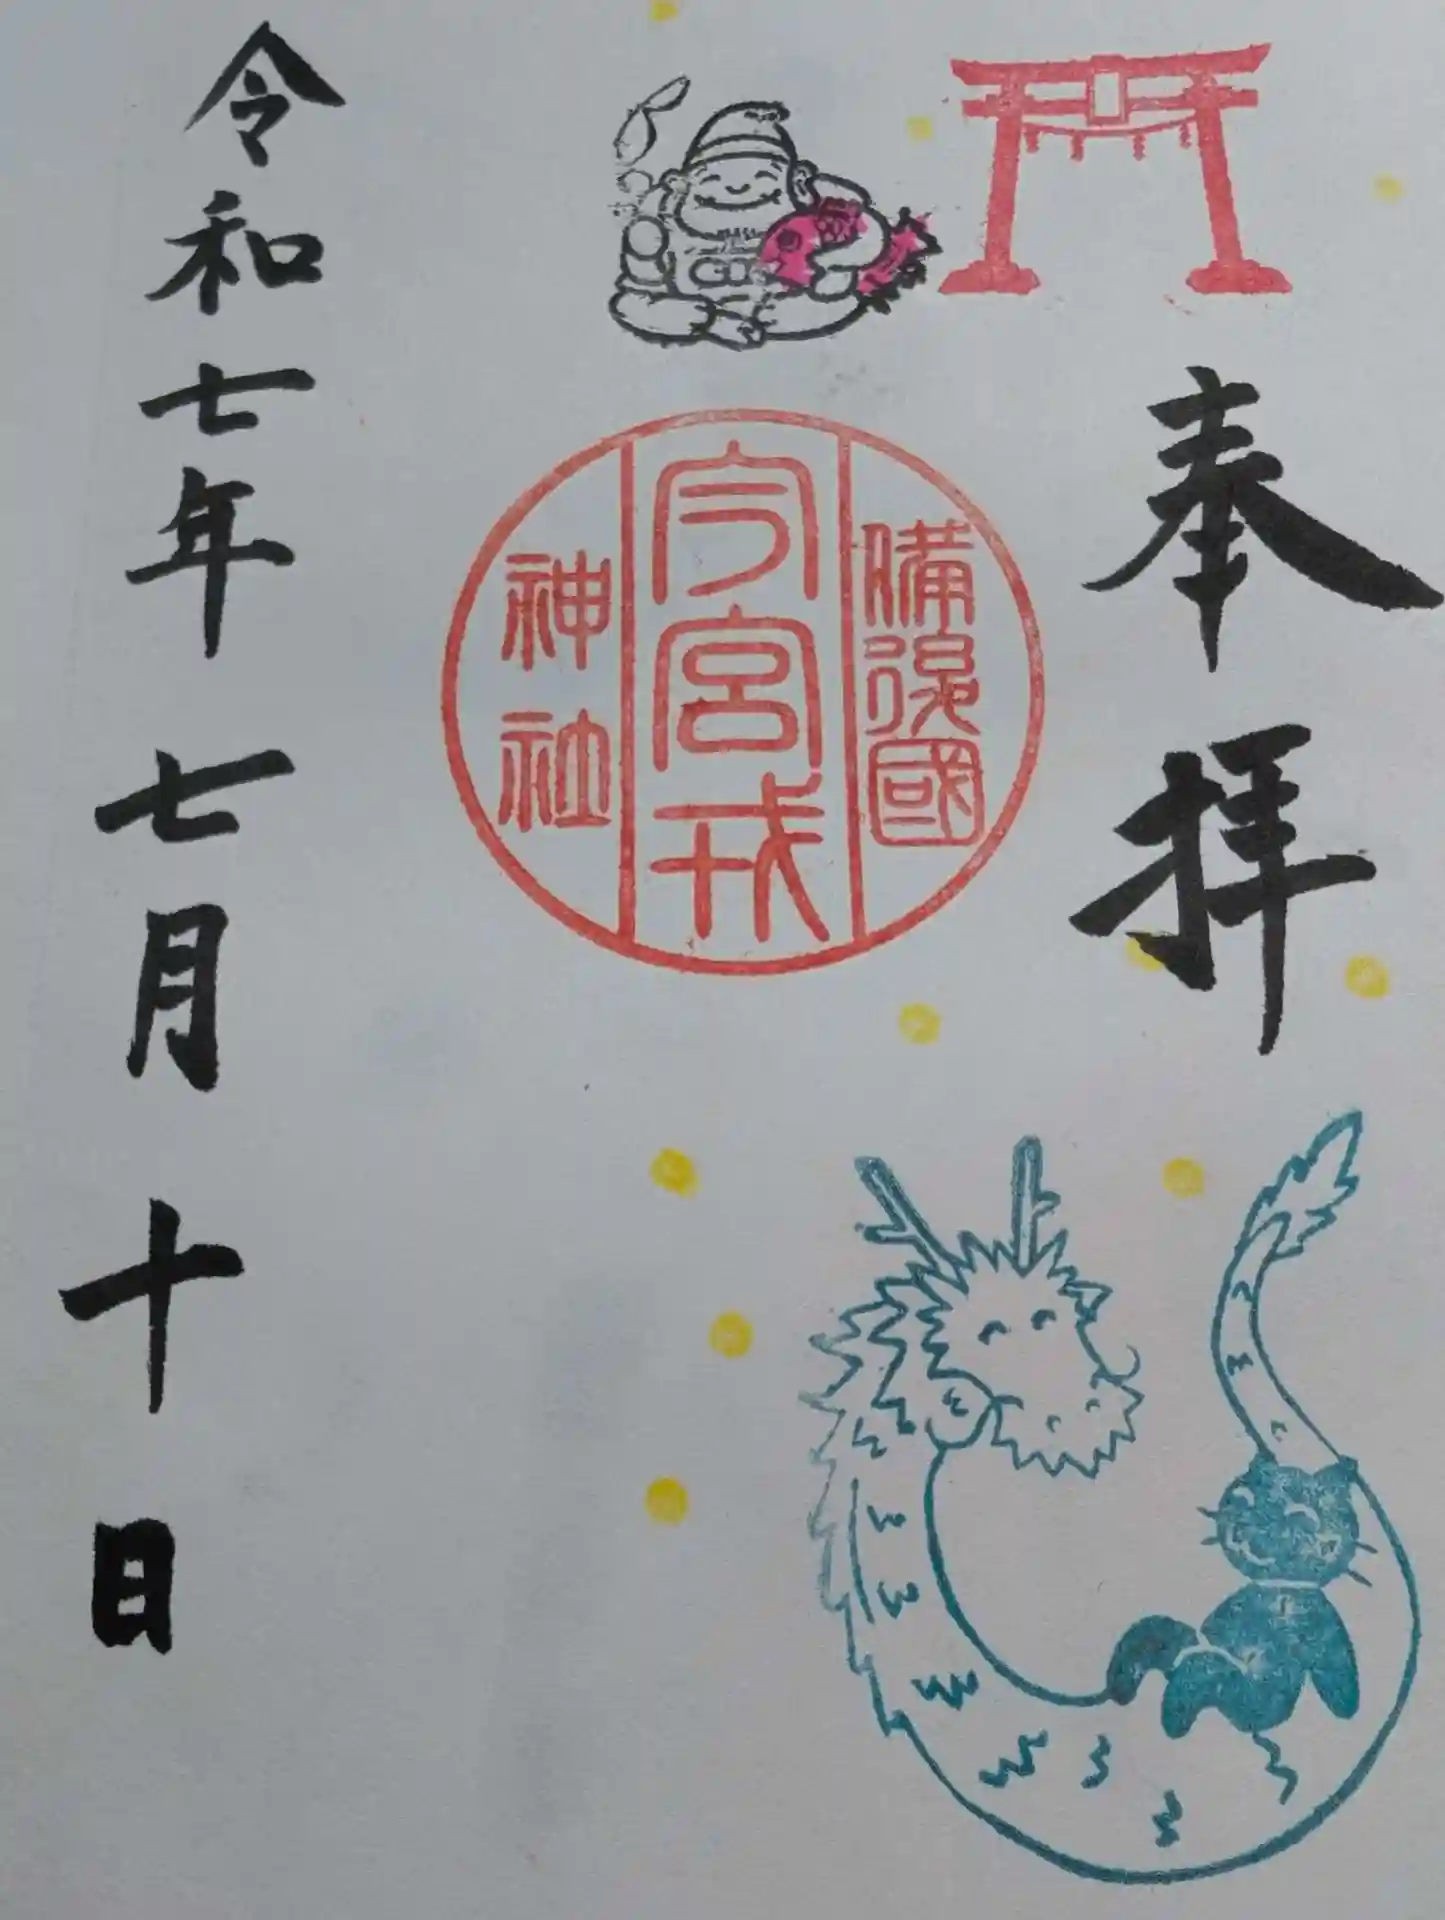 奉拝
備後國
今宮戎
神社
令和七年七月十日